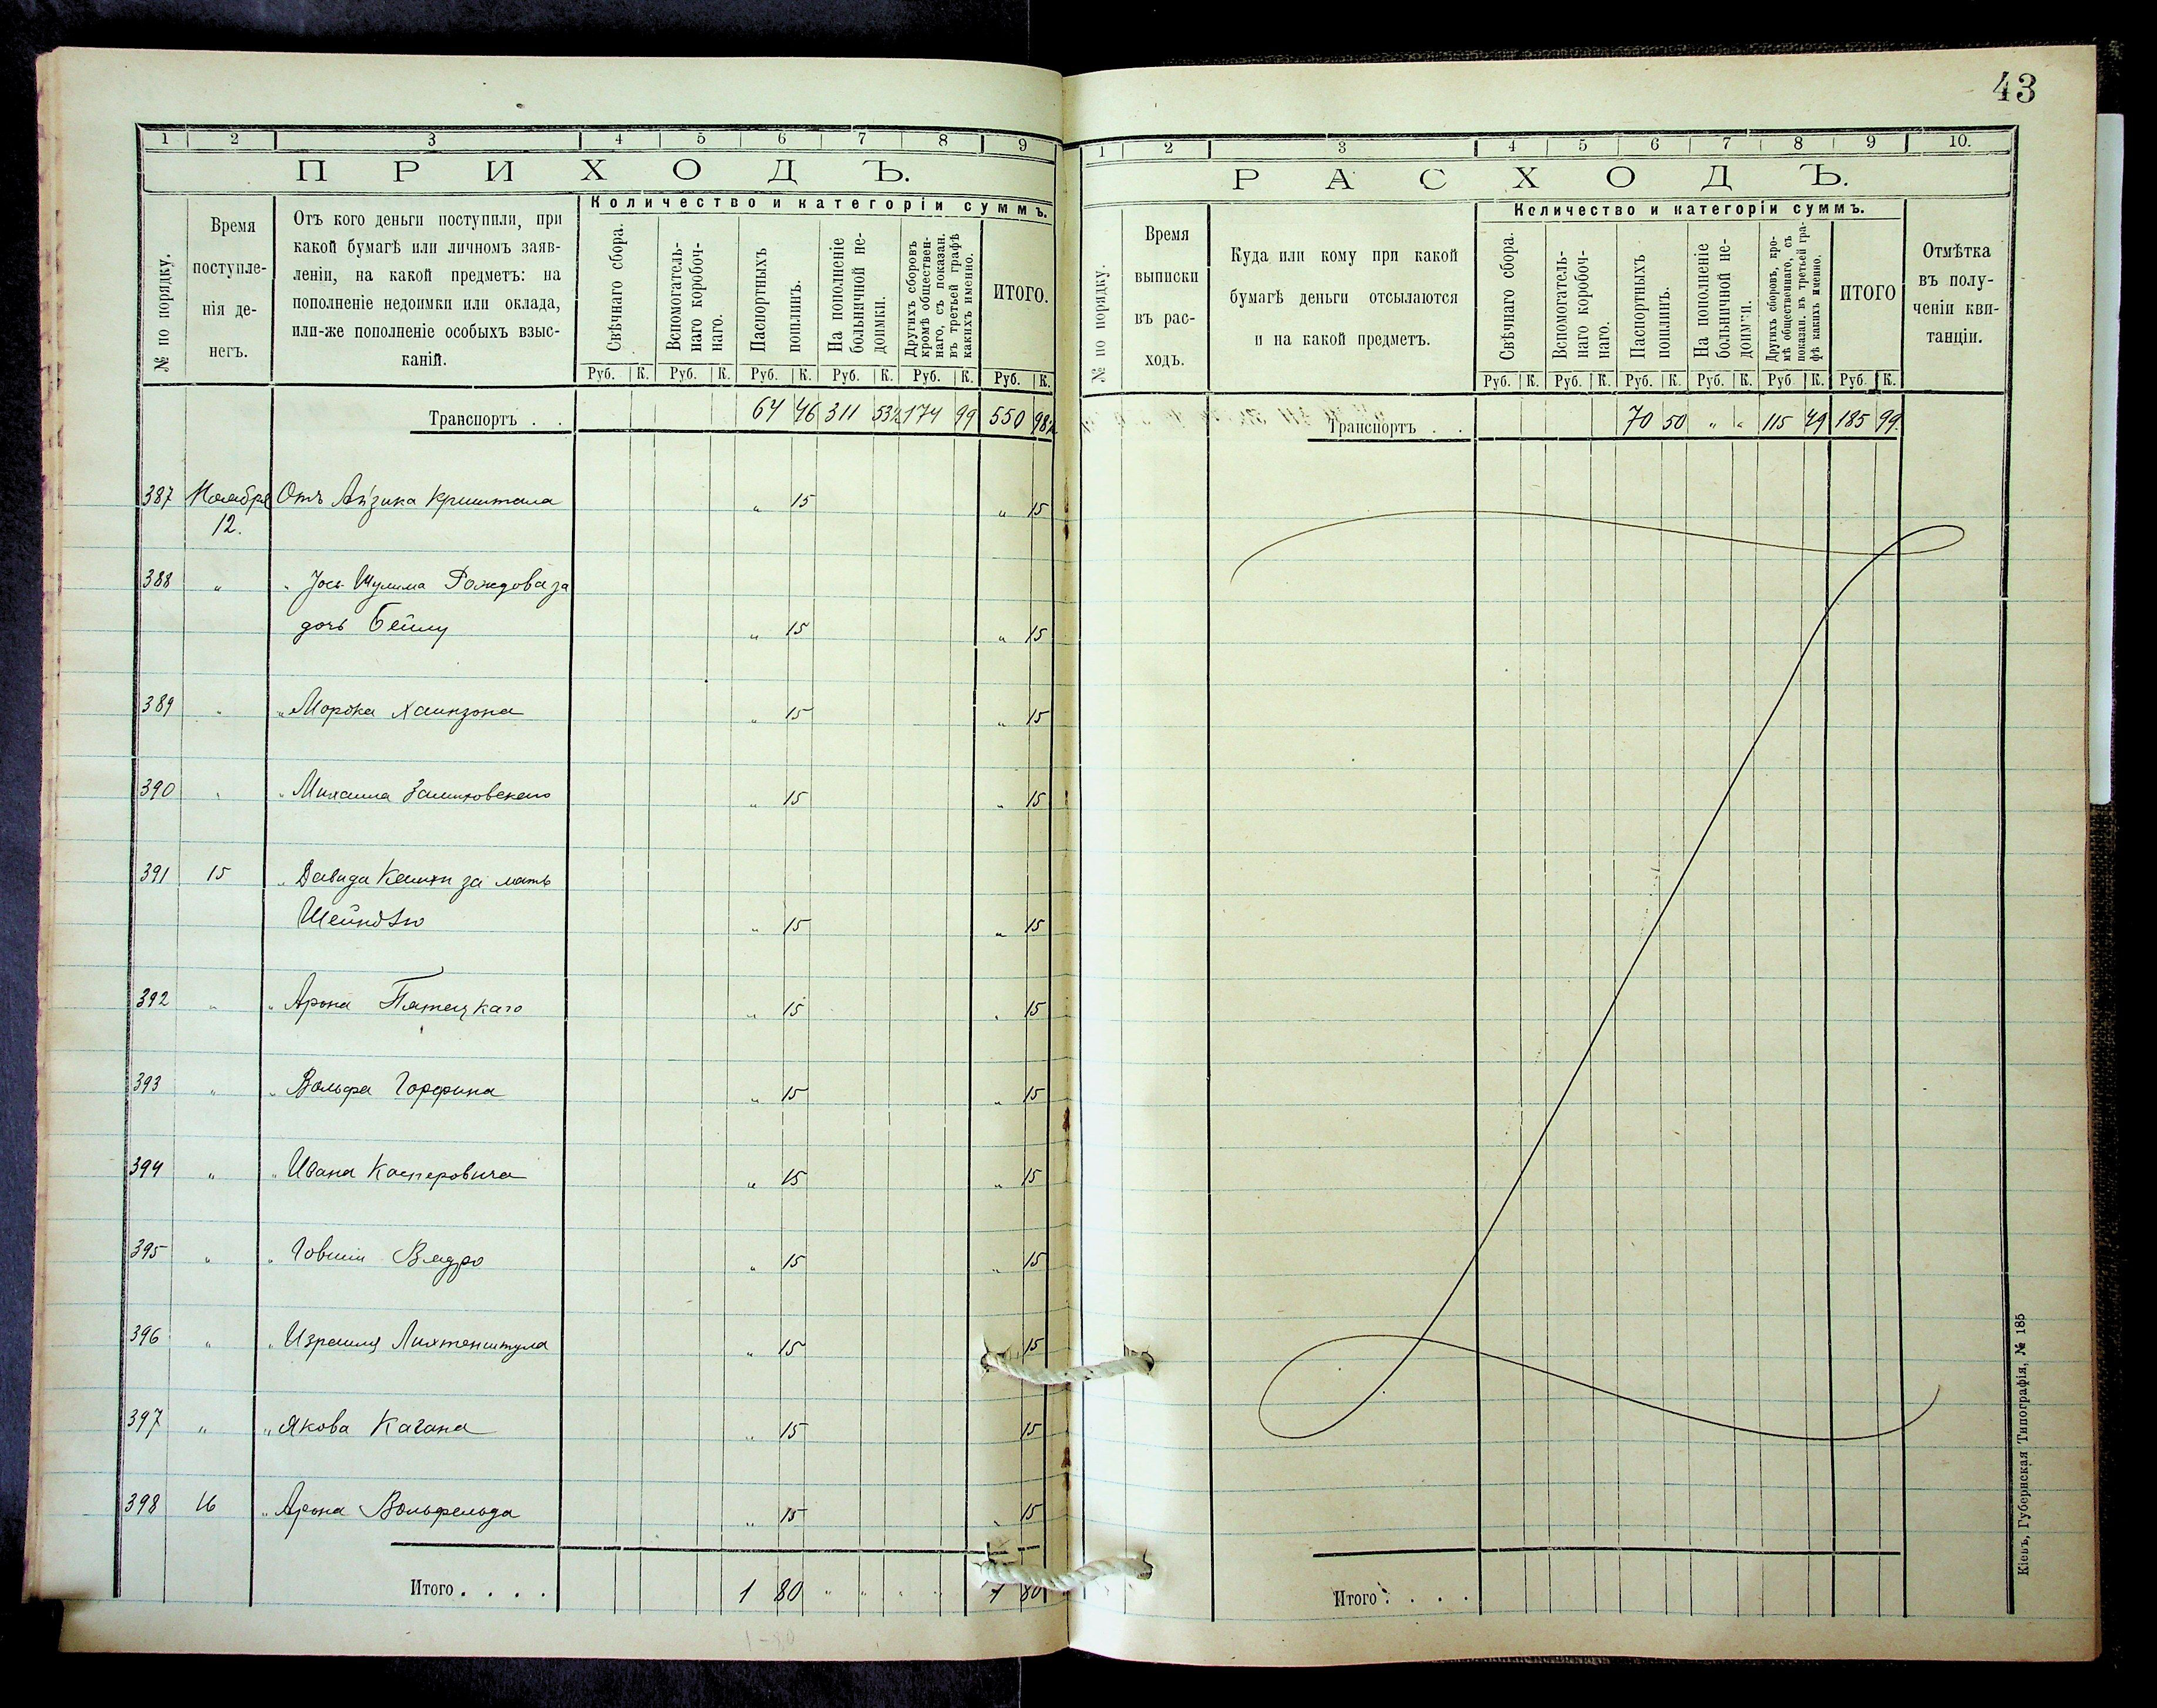 43
1 2 3 4 5 6 7 8 9
ПРИХОДЪ.
№ по порядку.
Время поступле-
нія де-
негъ.
Отъ кого деньги поступили, при
какой бумагѣ или личномъ заяв-
леніи, на какой предметъ: на
пополненіе недоимки или оклада,
или-же пополненіе особыхъ взыс-
каній.
Количество и категоріи суммъ.
Свѣчнаго сбора.
Вспомогатель-
наго коробоч-
наго.
Паспортныхъ
пошлинъ.
На пополненіе
больничной не-
доимки.
Другихъ сборовъ
кромѣ обществен-
наго, съ показан.
въ третьей графѣ
какихъ именно.
ИТОГО.
Руб. К. Руб. К. Руб. К. Руб. К. Руб. К. Руб. К.
Транспортъ . . 64 46 311 53½ 174 99 550 98½
387 Ноября Отъ Айзика Кришталя „ 15 „ 15
12.
388 „ „ Јось Шулима Рождова за
дочь Бейлу „ 15 „ 15
389 „ „ Мордка Хаинзона „ 15 „ 15
390 „ „ Михаила „ 15 „ 15
391 15 „ Давида за мать
Шейндлю „ 15 „ 15
392 „ „ Арона Пятецкаго „ 15 „ 15
393 „ „ Вольфа Горфина „ 15 „ 15
394 „ „ Ивана Касперовича „ 15 „ 15
395 „ „ Говшии Вядро „ 15 „ 15
396 „ „ Израиля Лихтенштула „ 15 15
397 „ „ Якова Кагана „ 15 15
398 16 „ Арона Вольфельда „ 15 „ 15
Итого . . . . 1 80 „ „ „ „ 1 80
1-80
1 2 3 4 5 6 7 8 9 10.
РАСХОДЪ.
№ по порядку.
Время
выписки
въ рас-
ходъ.
Куда или кому при какой
бумагѣ деньги отсылаются
и на какой предметъ.
Количество и категоріи суммъ.
Свѣчнаго сбора.
Вспомогатель-
наго коробоч-
наго.
Паспортныхъ
пошлинъ.
На пополненіе
больничной не-
доимки.
Другихъ сборовъ, кро-
мѣ общественнаго, съ
показан. въ третьей гра-
фѣ какихъ именно.
ИТОГО
Отмѣтка
въ полу-
ченіи кви-
танціи.
Руб. К. Руб. К. Руб. К. Руб. К. Руб. К. Руб. К.
Транспортъ . . 70 50 „ „ 115 49 185 99.
Итого . . . .
Кіевъ, Губернская Типографія, № 185